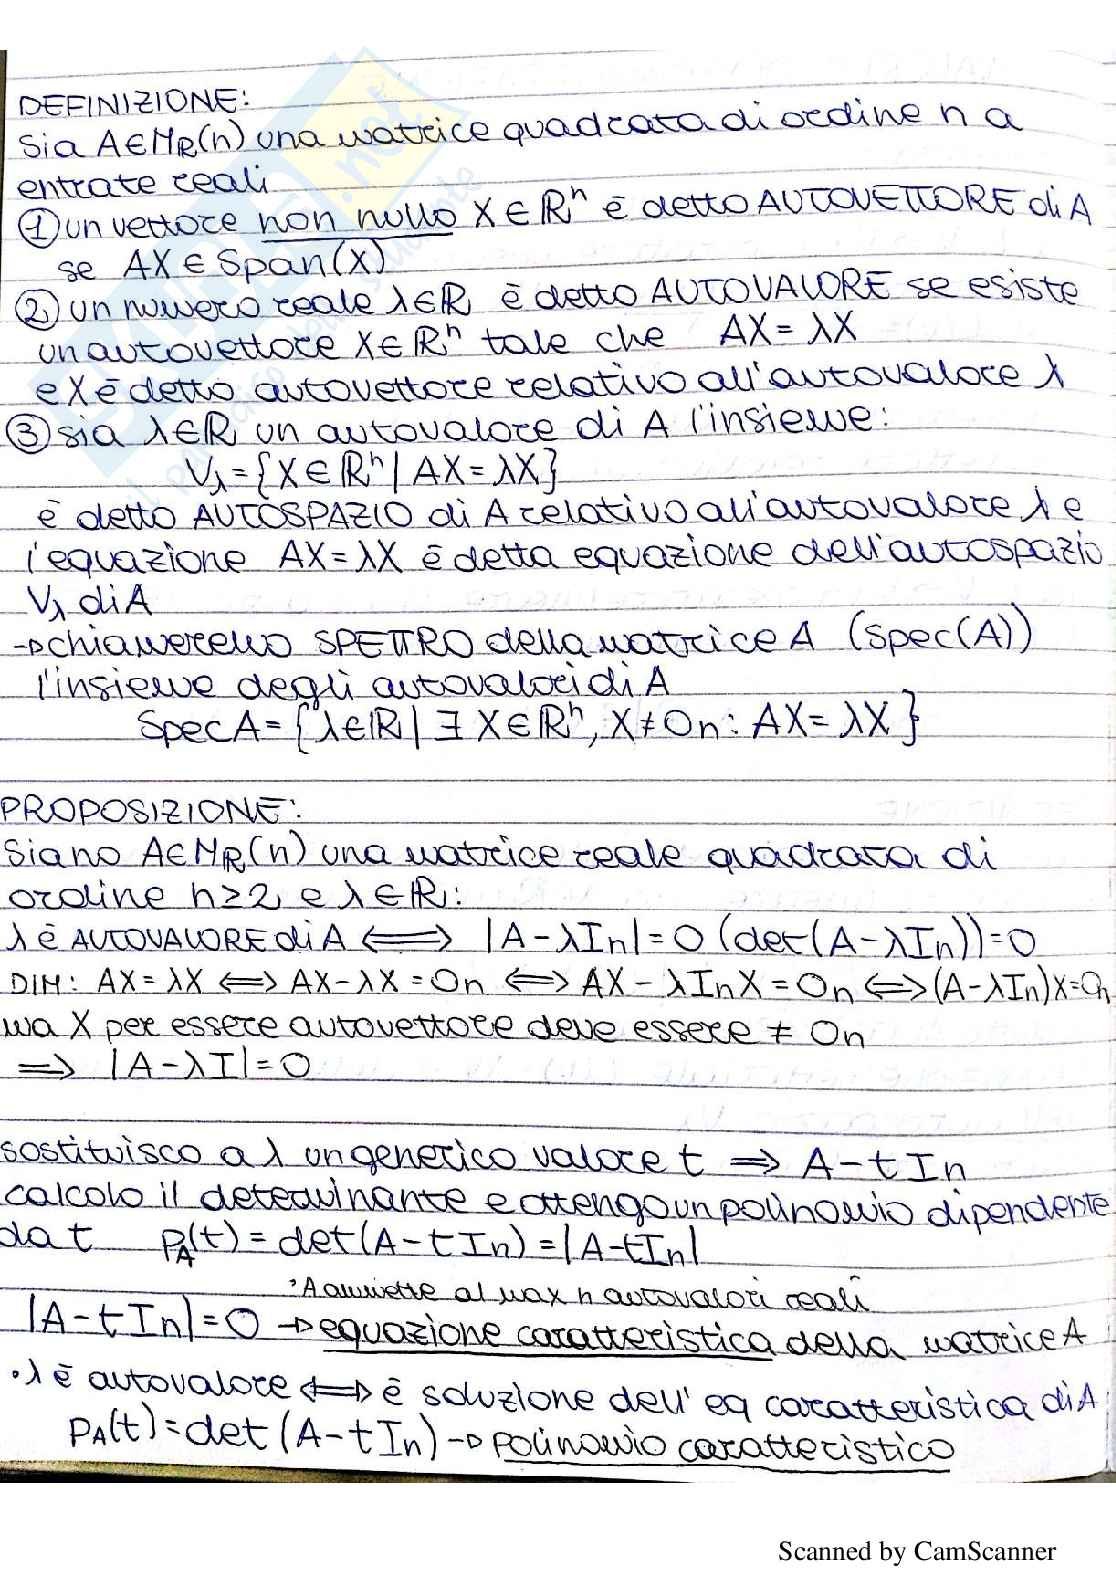 DEFINIZIONE:
Sia A∈M_R(n) una matrice quadrata di ordine n a
entrate reali
① un vettore non nullo X∈ℝⁿ è detto AUTOVETTORE di A
se AX ∈ Span(X)
② un numero reale λ∈ℝ è detto AUTOVALORE se esiste
un autovettore X∈ℝⁿ tale che AX = λX
e X è detto autovettore relativo all'autovalore λ
③ sia λ∈ℝ un autovalore di A l'insieme:
V_λ = {X∈ℝⁿ | AX = λX}
è detto AUTOSPAZIO di A relativo all'autovalore λ e
l'equazione AX = λX è detta equazione dell'autospazio
V_λ di A
→ chiameremo SPETTRO della matrice A (Spec(A))
l'insieme degli autovalori di A
Spec A = {λ∈ℝ | ∃ X∈ℝⁿ, X≠0n : AX = λX}
PROPOSIZIONE:
Siano A∈M_R(n) una matrice reale quadrata di
ordine n≥2 e λ∈ℝ:
λ è AUTOVALORE di A ⟺ |A-λIn| = 0 (det(A-λIn))=0
DIM: AX = λX ⟺ AX-λX = 0n ⟺ AX - λInX = 0n ⟺ (A-λIn)X=0n
ma X per essere autovettore deve essere ≠ 0n
⟹ |A-λI| = 0
sostituisco a λ un generico valore t ⟹ A-tIn
calcolo il determinante e ottengo un polinomio dipendente
da t P_A(t) = det(A-tIn) = |A-tIn|
• Ammette al max n autovalori reali
|A-tIn| = 0 → equazione caratteristica della matrice A
• λ è autovalore ⟺ è soluzione dell'eq caratteristica di A
P_A(t) = det(A-tIn) → polinomio caratteristico
Scanned by CamScanner